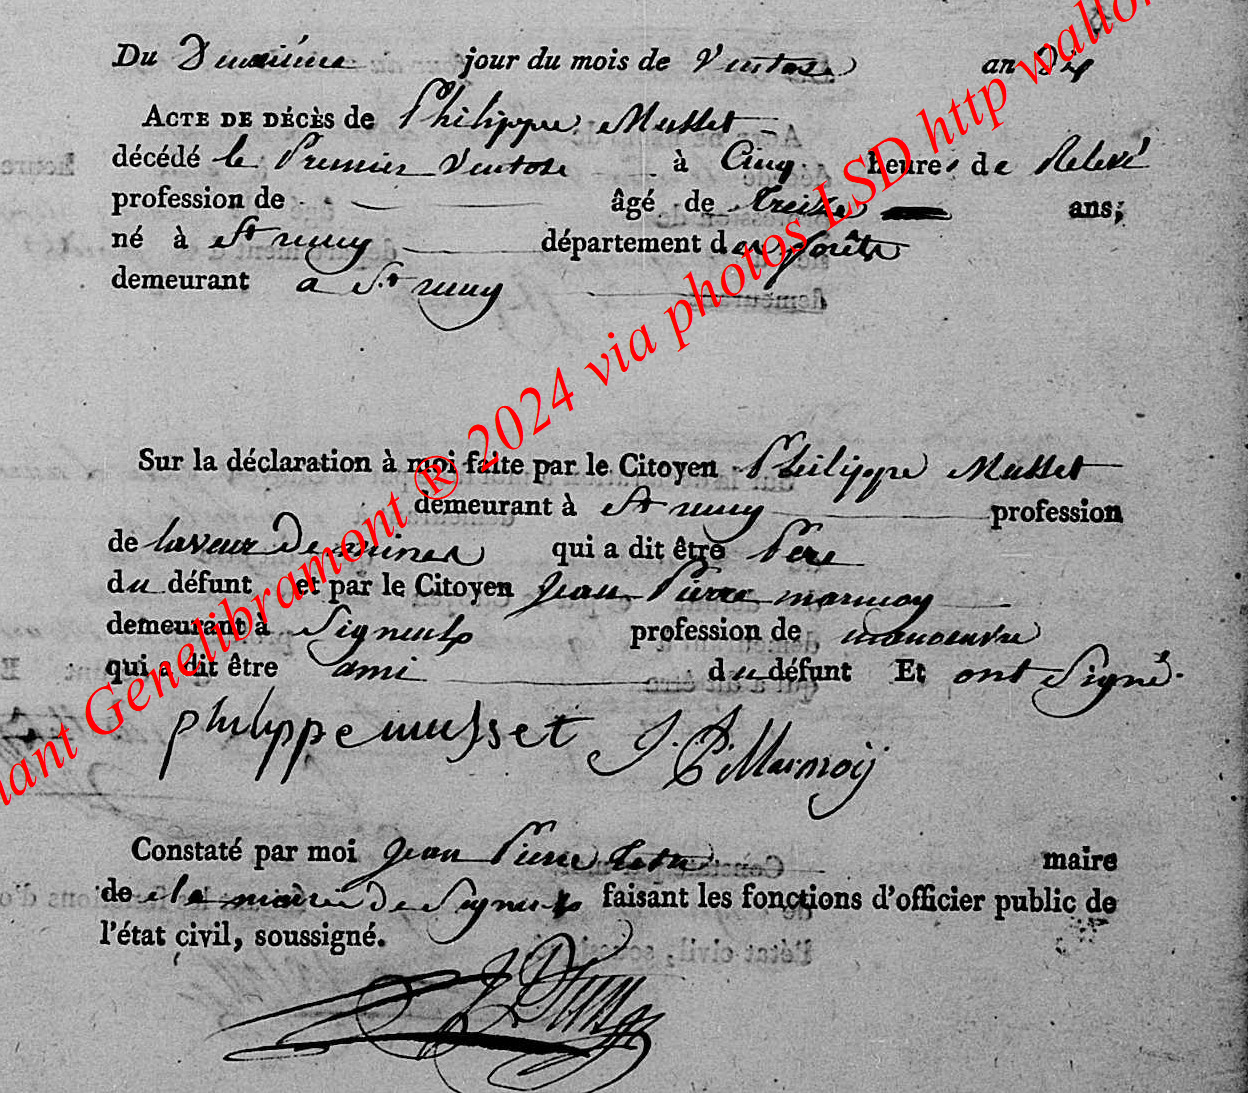 Du Deuxième jour du mois de Ventose an Dix
ACTE DE DÉCÈS de Philippe Musset
décédé le Premier Ventose à Cinq heures de Relevé
profession de âgé de treize ans;
né à St remy département des forêts
demeurant a St remy
Sur la déclaration à moi faite par le Citoyen Philippe Musset
demeurant à St remy profession
de laveur De mines qui a dit être Père
du défunt et par le Citoyen Jean Pierre marmoy
demeurant à Signeulx profession de manoeuvre
qui a dit être ami du défunt Et ont Signé.
philippe musset J. P. Marmoij
Constaté par moi Jean Pierre maire
de la mairie De Signeulx faisant les fonctions d'officier public de
l'état civil, soussigné.
nant Genelibramont ® 2024 via photos LSD http wallo